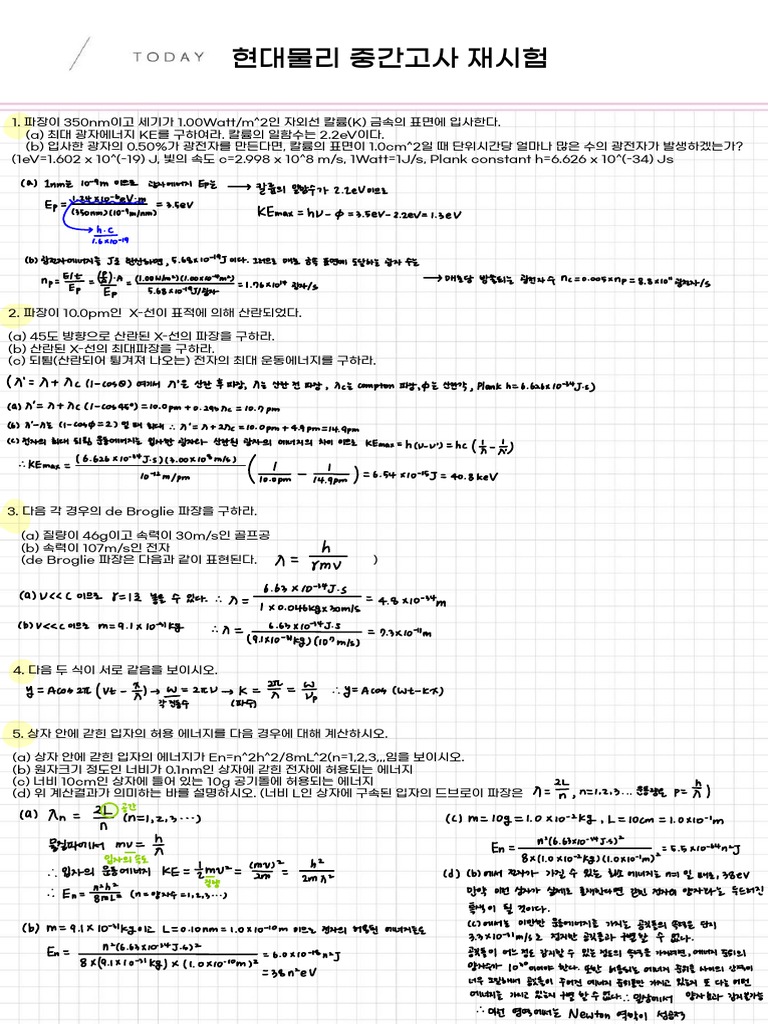 TODAY 현대물리 중간고사 재시험
1. 파장이 350nm이고 세기가 1.00Watt/m^2인 자외선 칼륨(K) 금속의 표면에 입사한다.
(a) 최대 광자에너지 KE를 구하여라. 칼륨의 일함수는 2.2eV이다.
(b) 입사한 광자의 0.50%가 광전자를 만든다면, 칼륨의 표면이 1.0cm^2일 때 단위시간당 얼마나 많은 수의 광전자가 발생하겠는가?
(1eV=1.602 x 10^(-19) J, 빛의 속도 c=2.998 x 10^8 m/s, 1Watt=1J/s, Plank constant h=6.626 x 10^(-34) Js
(a) 1nm는 10⁻⁹m 이므로 광자에너지 Ep는 → 칼륨의 일함수가 2.2eV이므로
Ep = 1.24×10⁻⁶eV·m / (350nm)(10⁻⁹m/nm) = 3.5eV KEmax = hν - Φ = 3.5eV - 2.2eV = 1.3eV
h·c / 1.6×10⁻¹⁹
(b) 광전자에너지를 J로 환산하면, 5.68×10⁻¹⁹J 이다. 그러므로 매초 금속 표면에 도달하는 광자 수는
np = E/t / Ep = (P/A)·A / Ep = (1.00W/m²)(1.00×10⁻⁴m²) / 5.68×10⁻¹⁹J/광자 = 1.76×10¹⁴ 광자/s → 매초당 방출되는 광전자 수 nc = 0.005×np = 8.8×10¹¹ 광전자/s
2. 파장이 10.0pm인 X-선이 표적에 의해 산란되었다.
(a) 45도 방향으로 산란된 X-선의 파장을 구하라.
(b) 산란된 X-선의 최대파장을 구하라.
(c) 되튐(산란되어 튕겨져 나오는) 전자의 최대 운동에너지를 구하라.
(λ' = λ + λc (1-cosθ) 여기서 λ'은 산란 후 파장, λ는 산란 전 파장, λc는 compton 파장, φ는 산란각, Plank h=6.626×10⁻³⁴J·s)
(a) λ' = λ + λc (1-cos45°) = 10.0pm + 0.293λc = 10.7pm
(b) λ'-λ는 (1-cosφ=2) 일 때 최대 ∴ λ' = λ + 2λc = 10.0pm + 4.9pm = 14.9pm
(c) 전자의 최대 되튐 운동에너지는 입사한 광자와 산란된 광자의 에너지의 차이 이므로 KEmax = h(ν-ν') = hc (1/λ - 1/λ')
∴ KEmax = (6.626×10⁻³⁴J·s)(3.00×10⁸m/s) / 10⁻¹²m/pm (1/10.0pm - 1/14.9pm) = 6.54×10⁻¹⁵J = 40.8keV
3. 다음 각 경우의 de Broglie 파장을 구하라.
(a) 질량이 46g이고 속력이 30m/s인 골프공
(b) 속력이 107m/s인 전자
(de Broglie 파장은 다음과 같이 표현된다. λ = h / γmν )
(a) ν<<c 이므로 γ=1로 놓을 수 있다. ∴ λ = 6.63×10⁻³⁴J·s / 1×0.046kg×30m/s = 4.8×10⁻³⁴m
(b) ν<<c 이므로 m=9.1×10⁻³¹kg ∴ λ = 6.63×10⁻³⁴J·s / (9.1×10⁻³¹kg)(10⁷m/s) = 7.3×10⁻¹¹m
4. 다음 두 식이 서로 같음을 보이시오.
y = Acos 2π (νt - x/λ) → ω = 2πν → K = 2π/λ = ω/νp ∴ y = Acos (ωt-kx)
각진동수 (파수)
5. 상자 안에 갇힌 입자의 허용 에너지를 다음 경우에 대해 계산하시오.
(a) 상자 안에 갇힌 입자의 에너지가 En=n^2h^2/8mL^2(n=1,2,3,,,임을 보이시오.
(b) 원자크기 정도인 너비가 0.1nm인 상자에 갇힌 전자에 허용되는 에너지
(c) 너비 10cm인 상자에 들어 있는 10g 공기돌에 허용되는 에너지
(d) 위 계산결과가 의미하는 바를 설명하시오. (너비 L인 상자에 구속된 입자의 드브로이 파장은 λ = 2L/n, n=1,2,3... 운동량은 p = h/λ)
(a) λn = 2L/n 공간 (n=1,2,3···)
물질파에서 mν = h/λ
입자의 속도
∴ 입자의 운동에너지 KE = 1/2 mν² = (mν)²/2m = h²/2mλ²
질량
∴ En = n²h²/8mL² (n = 양자수 = 1,2,3,···)
(b) m = 9.1×10⁻³¹kg이고 L = 0.10nm = 1.0×10⁻¹⁰m 이므로 전자의 허용된 에너지들은
En = n²(6.63×10⁻³⁴J·s)² / 8×(9.1×10⁻³¹kg)×(1.0×10⁻¹⁰m)² = 6.0×10⁻¹⁸n²J
= 38n²eV
(c) m = 10g = 1.0×10⁻²kg, L = 10cm = 1.0×10⁻¹m
En = n²(6.63×10⁻³⁴J·s)² / 8×(1.0×10⁻²kg)(1.0×10⁻¹m)² = 5.5×10⁻⁶⁴n²J
(d) (b)에서 전자가 가질 수 있는 최소 에너지는 n=1 일 때로, 38eV
만약 이런 상자가 실제로 존재한다면 갇힌 전자의 양자화는 두드러진
특징이 될 것이다.
(c)에서는 이만한 운동에너지를 가지는 공깃돌의 속력은 단지
3.3×10⁻³¹m/s로 정지한 공깃돌과 구별할 수 없다.
공깃돌이 어느 정도 감지할 수 있는 정도의 속력을 가지려면, 에너지 준위의
양자수가 10³⁰이어야 한다. 또한 허용되는 에너지 준위들 사이의
너무 조밀하여 공깃돌이 주어진 에너지 준위들만 가지고 있는지 또 다른 어떤
에너지를 가지고 있는지 구별 할 수 없다. ∴ 일상에서 양자효과 감지불가능
∴ 이런 영역에서는 Newton 역학이 성공적